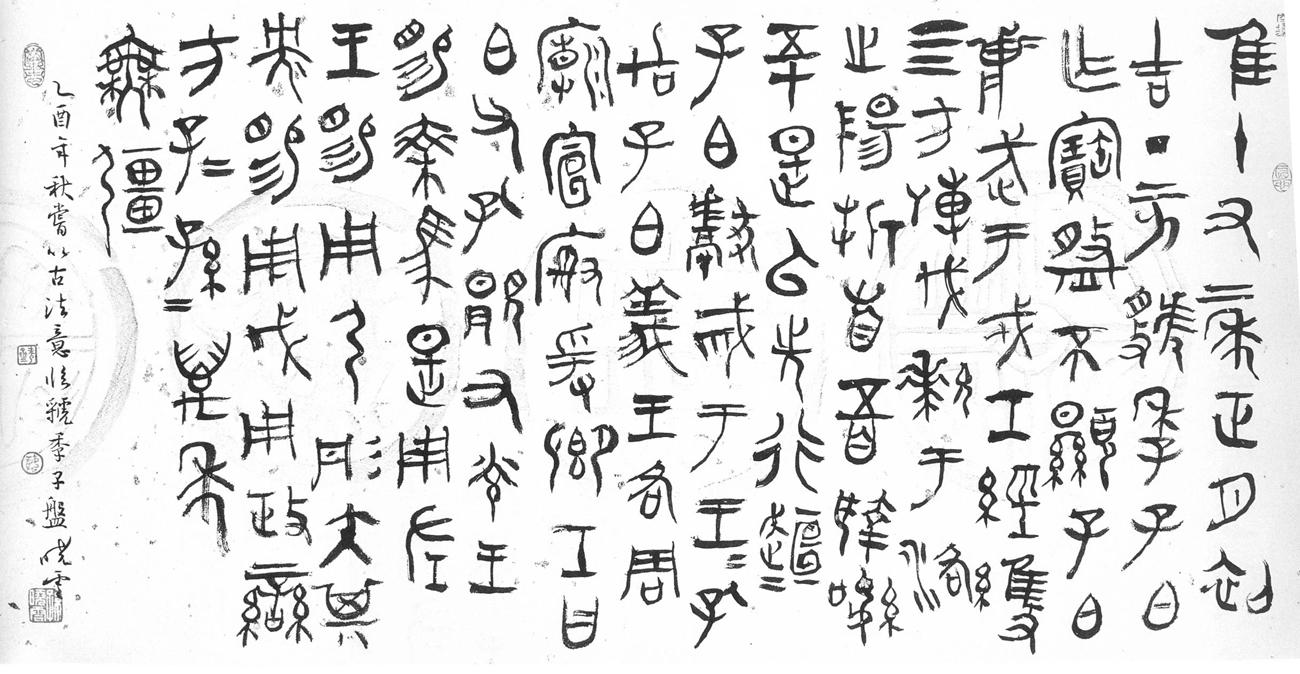 隹十又二年正月初
吉丁亥虢季子白
乍寶盤不顯子白
壯武于戎工經維
四方搏伐玁狁于洛
之陽折首五百執訊
五十是以先行桓=
子白獻馘于王=孔
加子白義王各周
廟宣廚爰鄉王曰
白父孔顯又光王
賜乘馬是用左
王賜用弓彤矢其
央賜用戉用政蠻
方子=孫=萬年
無疆
乙酉年秋嘗以古法意臨虢季子盤曉雲